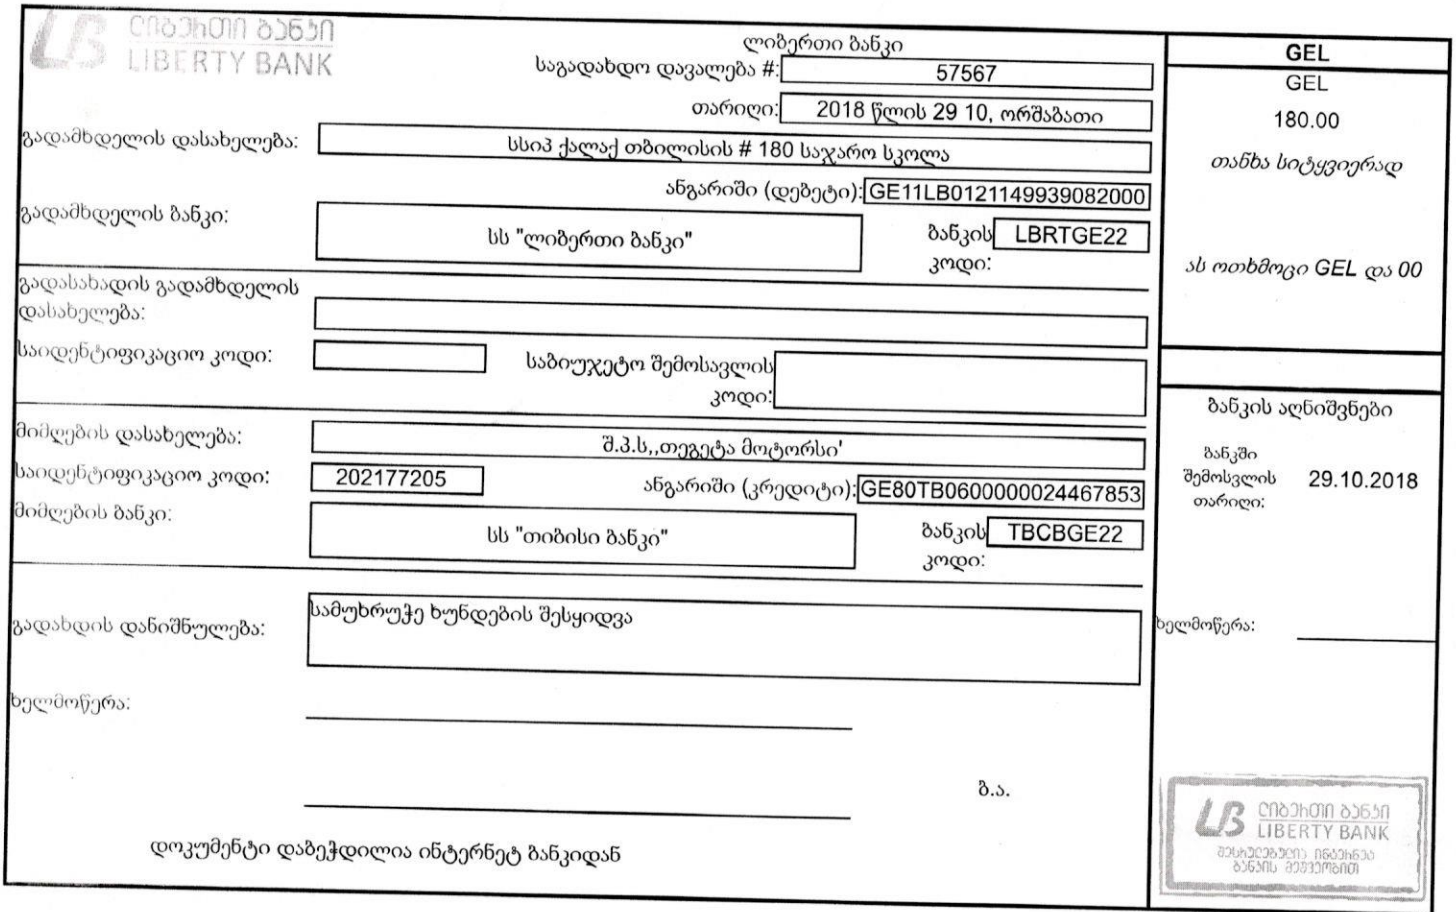 ლიბერთი ბანკი
LIBERTY BANK
ლიბერთი ბანკი
საგადახდო დავალება #: 57567
თარიღი: 2018 წლის 29 10, ორშაბათი
გადამხდელის დასახელება: სსიპ ქალაქ თბილისის # 180 საჯარო სკოლა
ანგარიში (დებეტი): GE11LB0121149939082000
გადამხდელის ბანკი: სს "ლიბერთი ბანკი" ბანკის კოდი: LBRTGE22
გადასახადის გადამხდელის
დასახელება:
საიდენტიფიკაციო კოდი: საბიუჯეტო შემოსავლის
კოდი:
მიმღების დასახელება: შ.პ.ს,,თეგეტა მოტორსი'
საიდენტიფიკაციო კოდი: 202177205 ანგარიში (კრედიტი): GE80TB0600000024467853
მიმღების ბანკი: სს "თიბისი ბანკი" ბანკის კოდი: TBCBGE22
გადახდის დანიშნულება: სამუხრუჭე ხუნდების შესყიდვა
ხელმოწერა:
ბ.ა.
დოკუმენტი დაბეჭდილია ინტერნეტ ბანკიდან
GEL
GEL
180.00
თანხა სიტყვიერად
ას ოთხმოცი GEL და 00
ბანკის აღნიშვნები
ბანკში
შემოსვლის 29.10.2018
თარიღი:
ხელმოწერა:
ლიბერთი ბანკი
LIBERTY BANK
შესრულებულია ინტერნეტ
ბანკის მეშვეობით